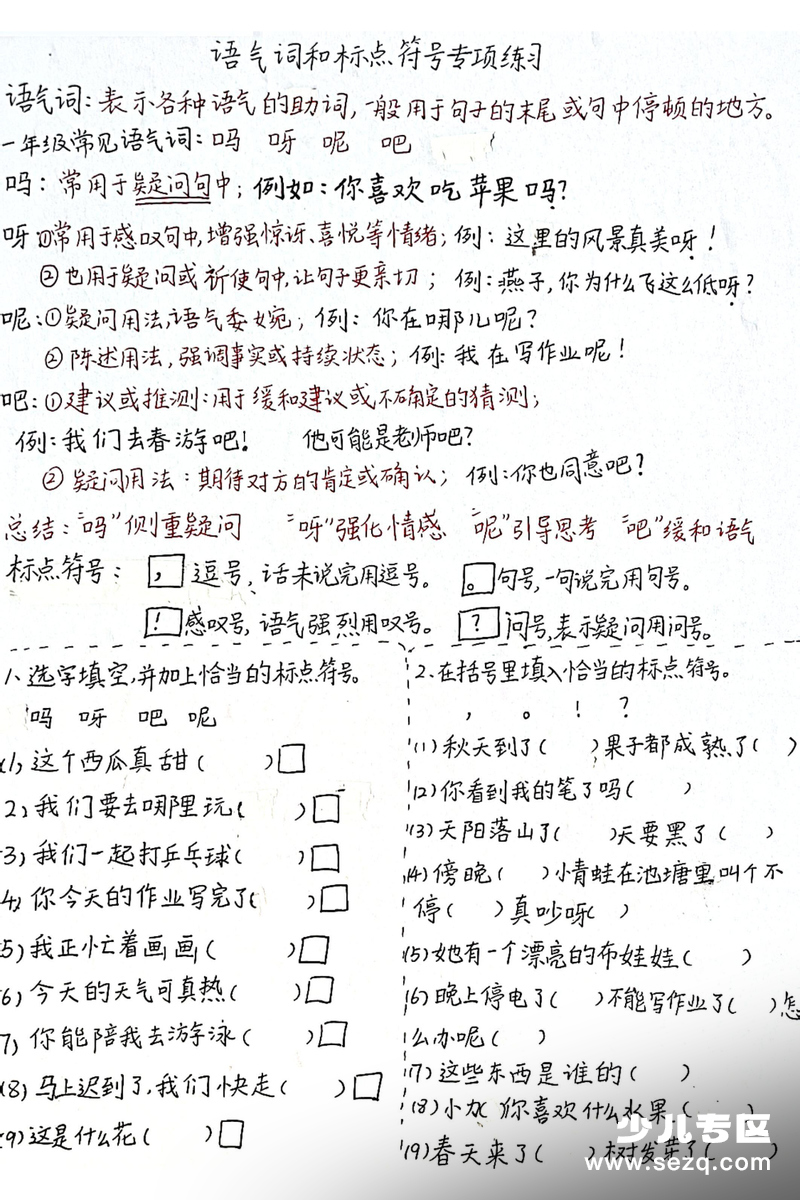 语气词和标点符号专项练习
语气词：表示各种语气的助词，一般用于句子的末尾或句中停顿的地方。
一年级常见语气词：吗 呀 呢 吧
吗：常用于疑问句中；例如：你喜欢吃苹果吗？
呀①常用于感叹句中，增强惊讶、喜悦等情绪；例：这里的风景真美呀！
②也用于疑问或祈使句中，让句子更亲切；例：燕子，你为什么飞这么低呀？
呢：①疑问用法，语气委婉；例：你在哪儿呢？
②陈述用法，强调事实或持续状态；例：我在写作业呢！
吧：①建议或推测：用于缓和建议或不确定的猜测；
例：我们去春游吧！ 他可能是老师吧？
②疑问用法：期待对方的肯定或确认；例：你也同意吧？
总结："吗"侧重疑问 "呀"强化情感 "呢"引导思考 "吧"缓和语气
标点符号：，逗号，话未说完用逗号。 。句号，一句说完用句号。
！感叹号，语气强烈用叹号。 ？问号，表示疑问用问号。
1、选字填空，并加上恰当的标点符号。
吗 呀 吧 呢
(1)这个西瓜真甜（ ）□
(2)我们要去哪里玩（ ）□
(3)我们一起打乒乓球（ ）□
(4)你今天的作业写完了（ ）□
(5)我正忙着画画（ ）□
(6)今天的天气可真热（ ）□
(7)你能陪我去游泳（ ）□
(8)马上迟到了，我们快走（ ）□
(9)这是什么花（ ）□
2、在括号里填入恰当的标点符号。
， 。 ！ ？
(1)秋天到了（ ）果子都成熟了（ ）
(2)你看到我的笔了吗（ ）
(3)天阳落山了（ ）天要黑了（ ）
(4)傍晚（ ）小青蛙在池塘里叫个不
停（ ）真吵呀（ ）
(5)她有一个漂亮的布娃娃（ ）
(6)晚上停电了（ ）不能写作业了（ ）怎
么办呢（ ）
(7)这些东西是谁的（ ）
(8)小力（ ）你喜欢什么水果（ ）
(9)春天来了（ ）树发芽了（ ）
少儿专区
www.sezq.com